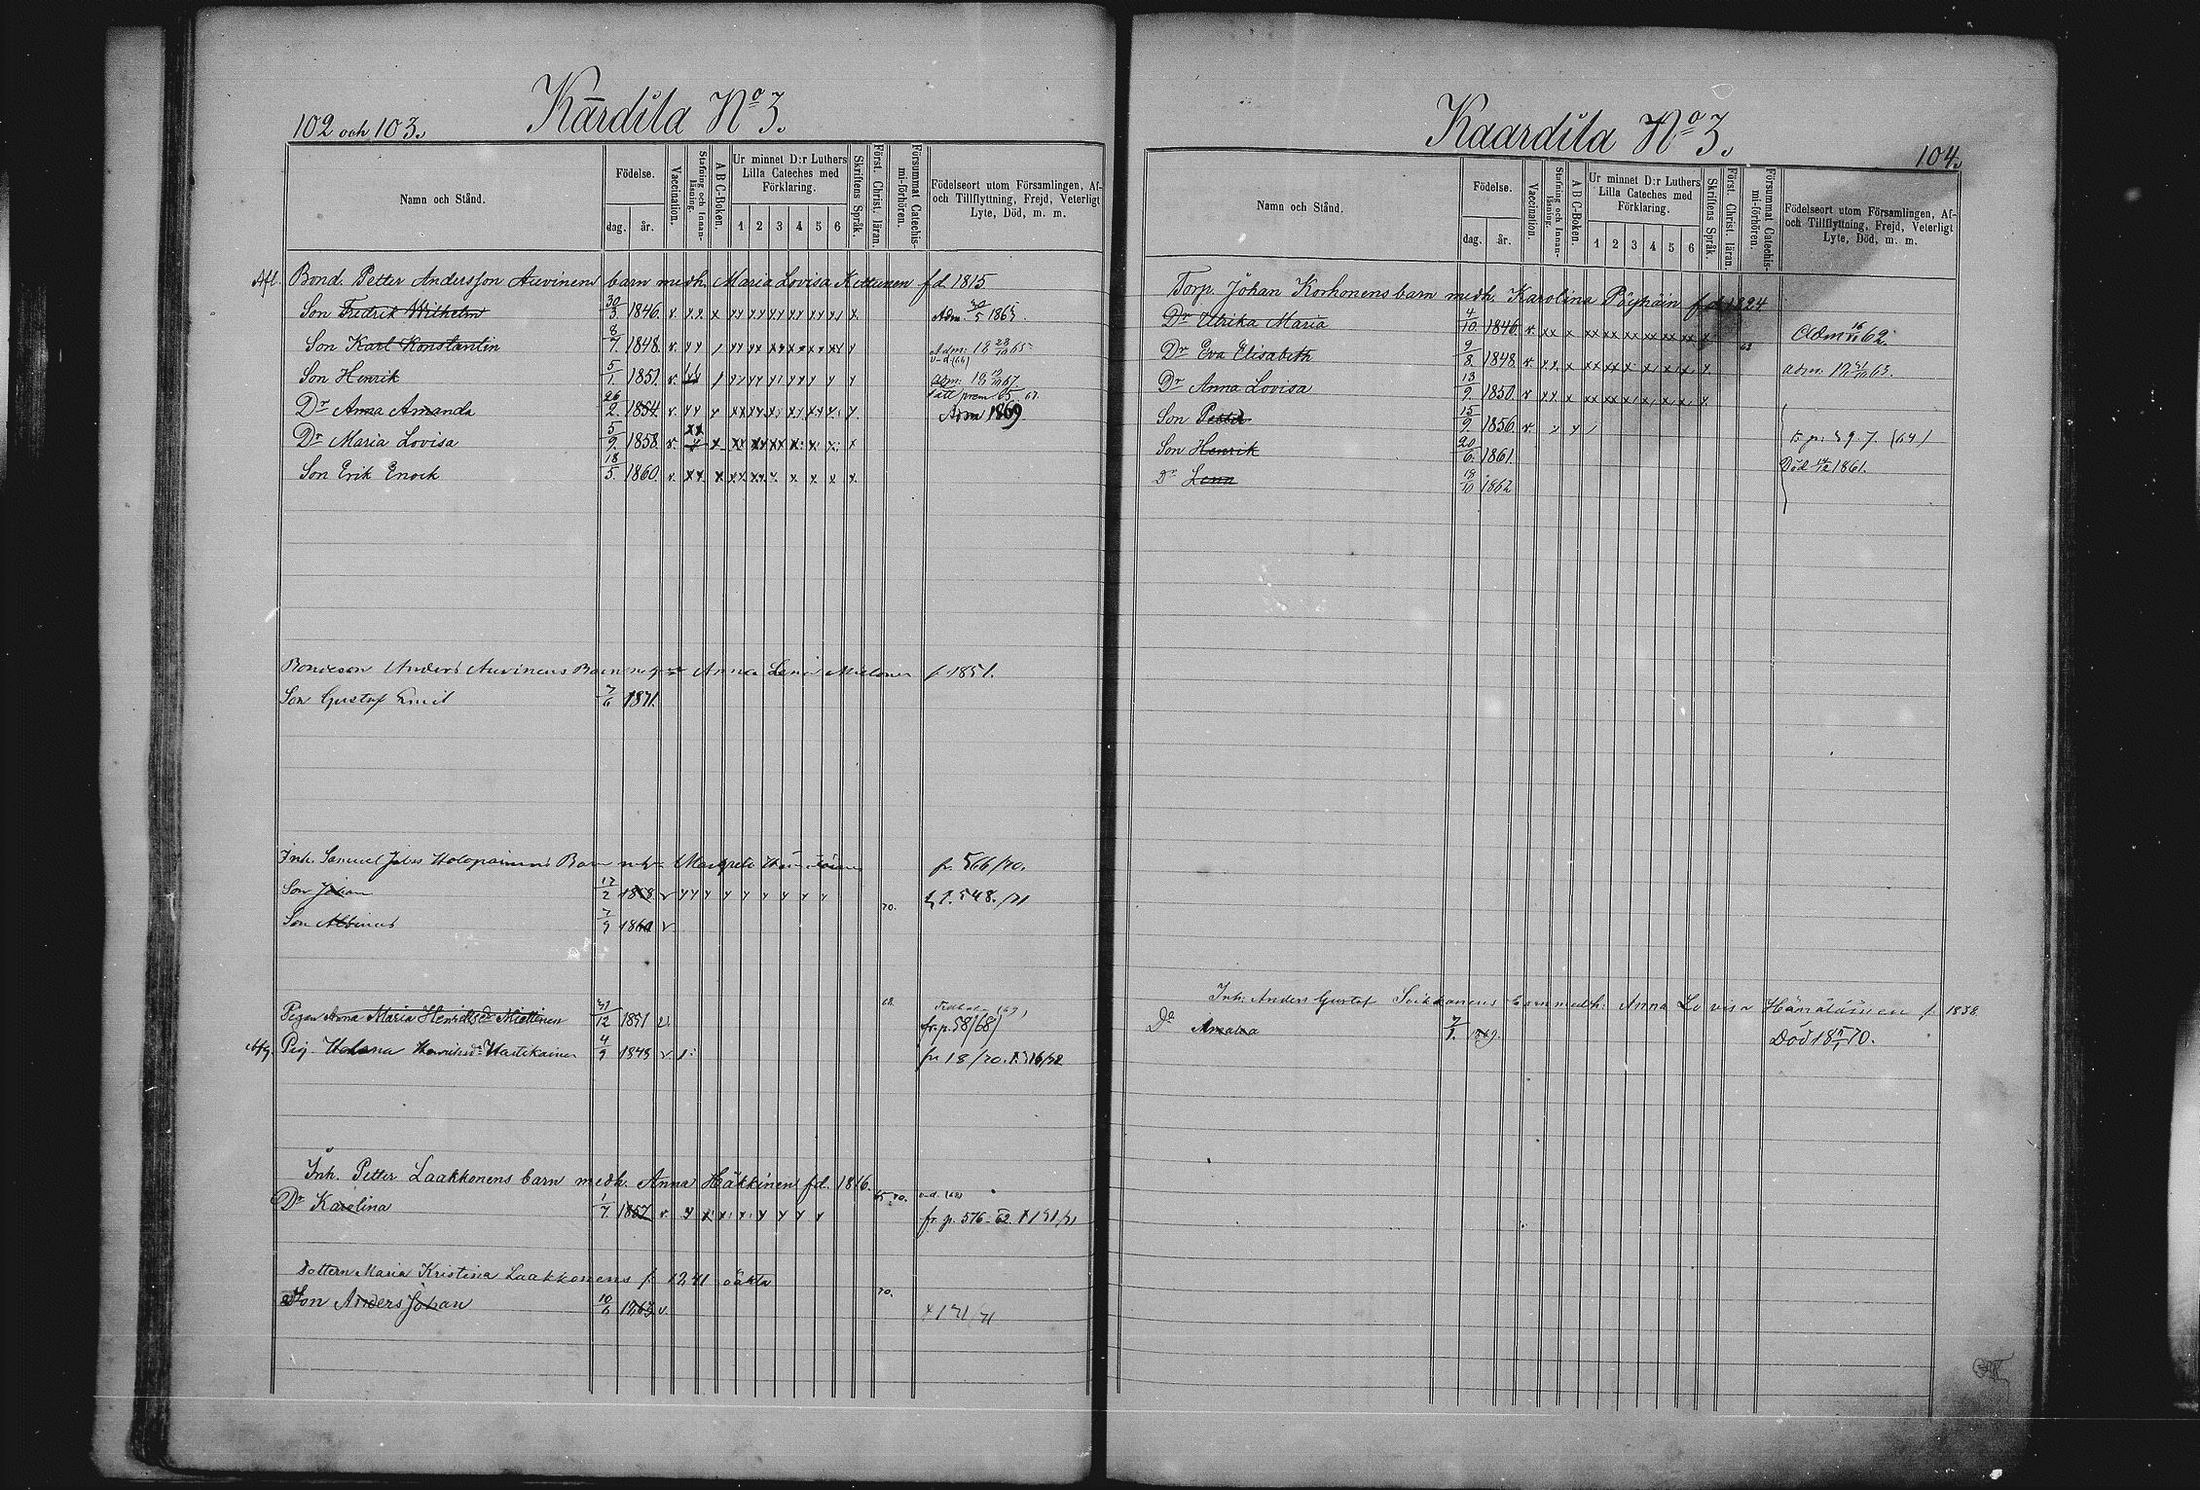 102 och 103.
Kårdila No 3.
Namn och Stånd.
Födelse.
dag.
år.
Vaccination.
Stafning och Innan-läsning.
A B C-Boken.
Ur minnet D:r Luthers Lilla Cateches med Förklaring.
1 2 3 4 5 6
Skriftens Språk.
Först. Christ. läran.
Försummat Catechis-mi-förhören.
Födelseort utom Församlingen, Af-
och Tillflyttning, Frejd, Veterligt
Lyte, Död, m. m.
Afl. Bond. Petter Andersson Auvinens barn medh. Maria Lovisa Kettunen fd 1815
Son Fredrik Wilhelm 30/3 1846. v. Adm 1863
Son Karl Konstantin 8/7. 1848. v. Adm:
Son Henrik 5/1. 1851. v. adm: 67.
Dr Anna Amanda 26/2. 1854. v. Adm 1869
Dr Maria Lovisa 5/9. 1858. v.
Son Erik Enock 18/5. 1860. v.
Bondeson Anders Auvinens Barn Anna Lena f 1851.
Son Gustaf Emil 7/6 1871.
Inh. Samuel Holopainens Barn Margreta fr. 566/70.
Son Johan 17/2 1858 v 70. 548./71
Son Albinus 7/9 1860 v
Pigan Anna Maria Henriksd Miettinen 31/12 1851 v. 68. fr. p. 58/68)
Afg. Pig. Helena Henriksd Hartikainen 4/9 1848 v fr 18/70.
Inh. Petter Laakkonens barn medh. Anna Häkkinen fd. 1816.
Dr Karolina 1/7. 1857 v. 65 70. fr. p. 576-62.
Dottern Maria Kristina Laakkonens f 1841 oäkta
Son Anders Johan 10/6 1863 v. 70.
Kaardila No 3.
104.
Namn och Stånd.
Födelse.
dag.
år.
Vaccination.
Stafning och Innan-läsning.
A B C-Boken.
Ur minnet D:r Luthers Lilla Cateches med Förklaring.
1 2 3 4 5 6
Skriftens Språk.
Först. Christ. läran.
Försummat Catechis-mi-förhören.
Födelseort utom Församlingen, Af-
och Tillflyttning, Frejd, Veterligt
Lyte, Död, m. m.
Torp. Johan Korhonens barn medh. Karolina Pöyhäin fd 1824
Dr Ulrika Maria 4/10. 1846. v. Adm 62.
Dr Eva Elisabeth 9/8. 1848. v. 63 adm. 63.
Dr Anna Lovisa 13/9. 1850. v.
Son Petter 15/9. 1856. v.
Son Henrik 20/6. 1861. Död 1861.
Dr Lena 18/10 1862
Inh. Anders Gustaf barn medh. Anna Lovisa Hämäläinen f 1838
Dr Amalia 7/1. Död 18 70.